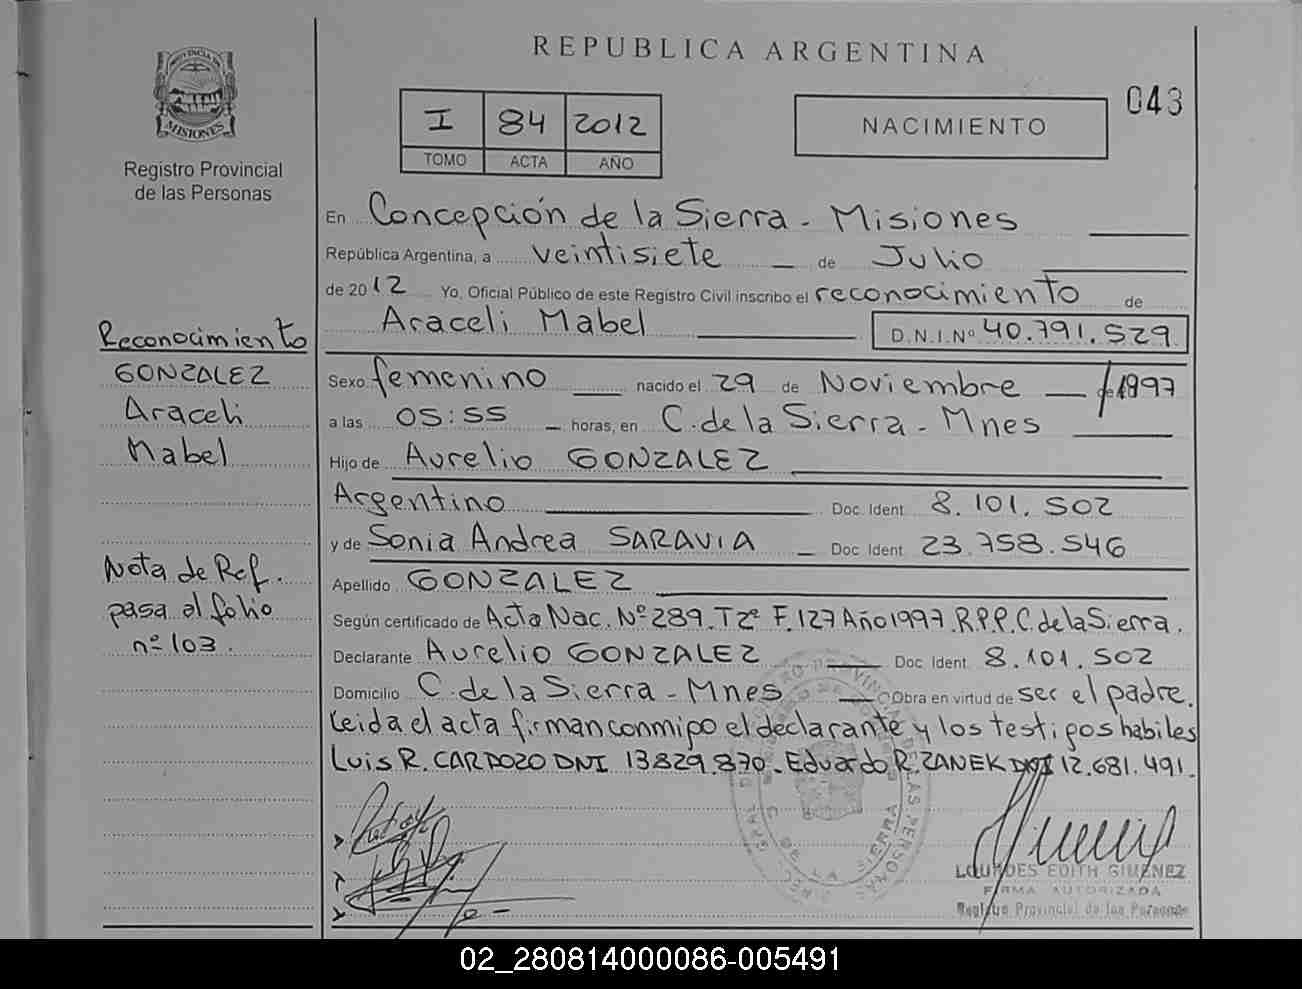 REPUBLICA ARGENTINA
043
I 84 2012
TOMO ACTA AÑO
NACIMIENTO
PROVINCIA DE MISIONES
Registro Provincial
de las Personas
Reconocimiento
GONZALEZ
Araceli
Mabel
Nota de Ref.
pasa al folio
nº 103.
En Concepción de la Sierra - Misiones
República Argentina, a veintisiete de Julio
de 2012 Yo, Oficial Público de este Registro Civil inscribo el reconocimiento de
Araceli Mabel D.N.I.Nº 40.791.529
Sexo femenino nacido el 29 de Noviembre de 1997
a las 05:55 horas, en C. de la Sierra - Mnes
Hijo de Aurelio GONZALEZ
Argentino Doc. Ident. 8.101.502
y de Sonia Andrea SARAVIA Doc. Ident. 23.758.546
Apellido GONZALEZ
Según certificado de Acta Nac. Nº 289. T 2º F. 127 Año 1997. R.P.P. C. de la Sierra.
Declarante Aurelio GONZALEZ Doc. Ident. 8.101.502
Domicilio C. de la Sierra - Mnes Obra en virtud de ser el padre.
Leida el acta firman conmigo el declarante y los testigos habiles
Luis R. CARDOZO DNI 13829.870 - Eduardo R. ZANEK DNI 12.681.491.
LOURDES EDITH GIMENEZ
FIRMA AUTORIZADA
Registro Provincial de las Personas
02_280814000086-005491